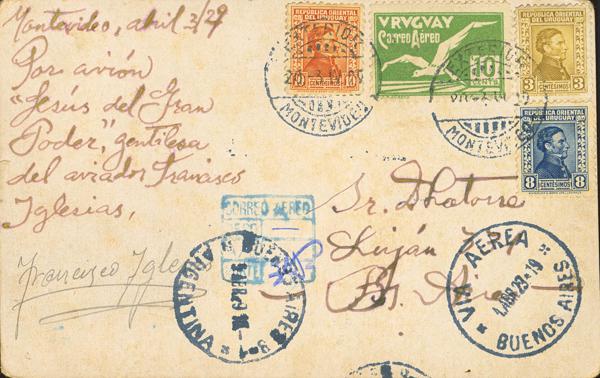 Montevideo, abril 3/29
Por avión
"Jesús del Gran
Poder," gentilesa
del aviador Francisco
Iglesias,
Francisco Igle
REPÚBLICA ORIENTAL
DEL URUGUAY
CENTÉSIMOS
URUGUAY
Correo Aéreo
10
REPÚBLICA ORIENTAL
DEL URUGUAY
3 CENTÉSIMOS 3
REPÚBLICA ORIENTAL
DEL URUGUAY
8 CENTÉSIMOS 8
MONTEVIDEO
MONTEVIDEO
CORREO AEREO
Sr. 
Luján
Bs. Aires
BUENOS AIRES
ARGENTINA
VIA AEREA
4.ABR.29 19
BUENOS AIRES